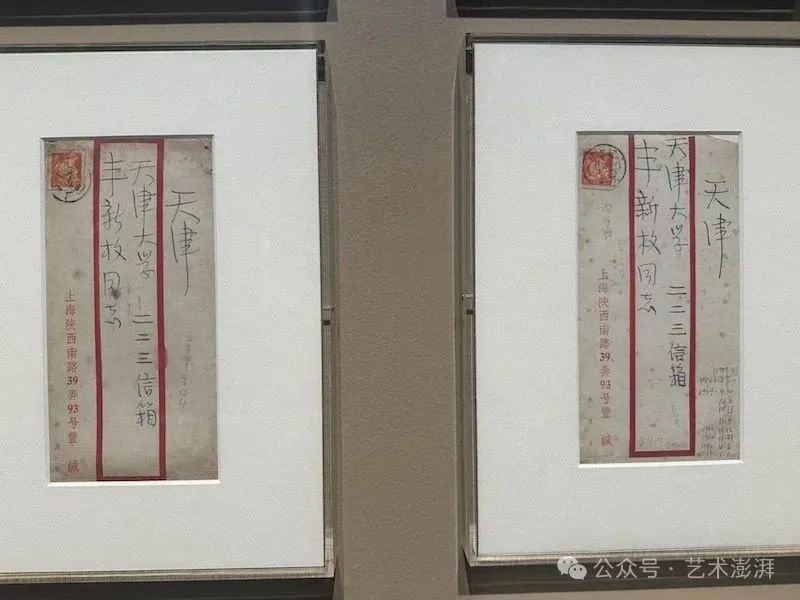 天津
天津大学 二二三信箱
丰新枚同志
上海陕西南路39弄93号豐 缄
天津
天津大学 二二三信箱
丰新枚同志
上海陕西南路39弄93号豐 缄
公众号·艺术澎湃